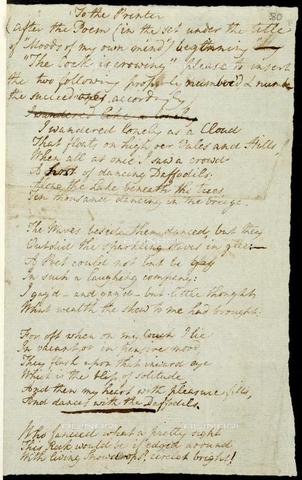 80
To the Printer
(after the Poem (in the set under the title
of Moods of my own mind) beginning
"The Cock is crowing" please to insert
the two following properly number'd & num
the succeed according
I wandered like a lonely
I wandered lonely as a Cloud
That floats on high o'er Vales and Hills,
When all at once I saw a crowd
A host of dancing Daffodils;
Along the Lake, beneath the trees,
Ten thousand dancing in the breeze.
The Waves beside them danced, but they
Outdid the sparkling Waves in glee:—
A Poet could not but be gay
In such a laughing company:
I gaz'd—and gaz'd—but little thought
What wealth the shew to me had brought:
For oft when on my Couch I lie
In vacant or in pensive mood
They flash upon that inward eye
Which is the bliss of solitude
And then my heart with pleasure fills,
And dances with the Daffodils.
Who fancied what a pretty sight
This Rock would be if edged around
With living Snowdrops? circlet bright!